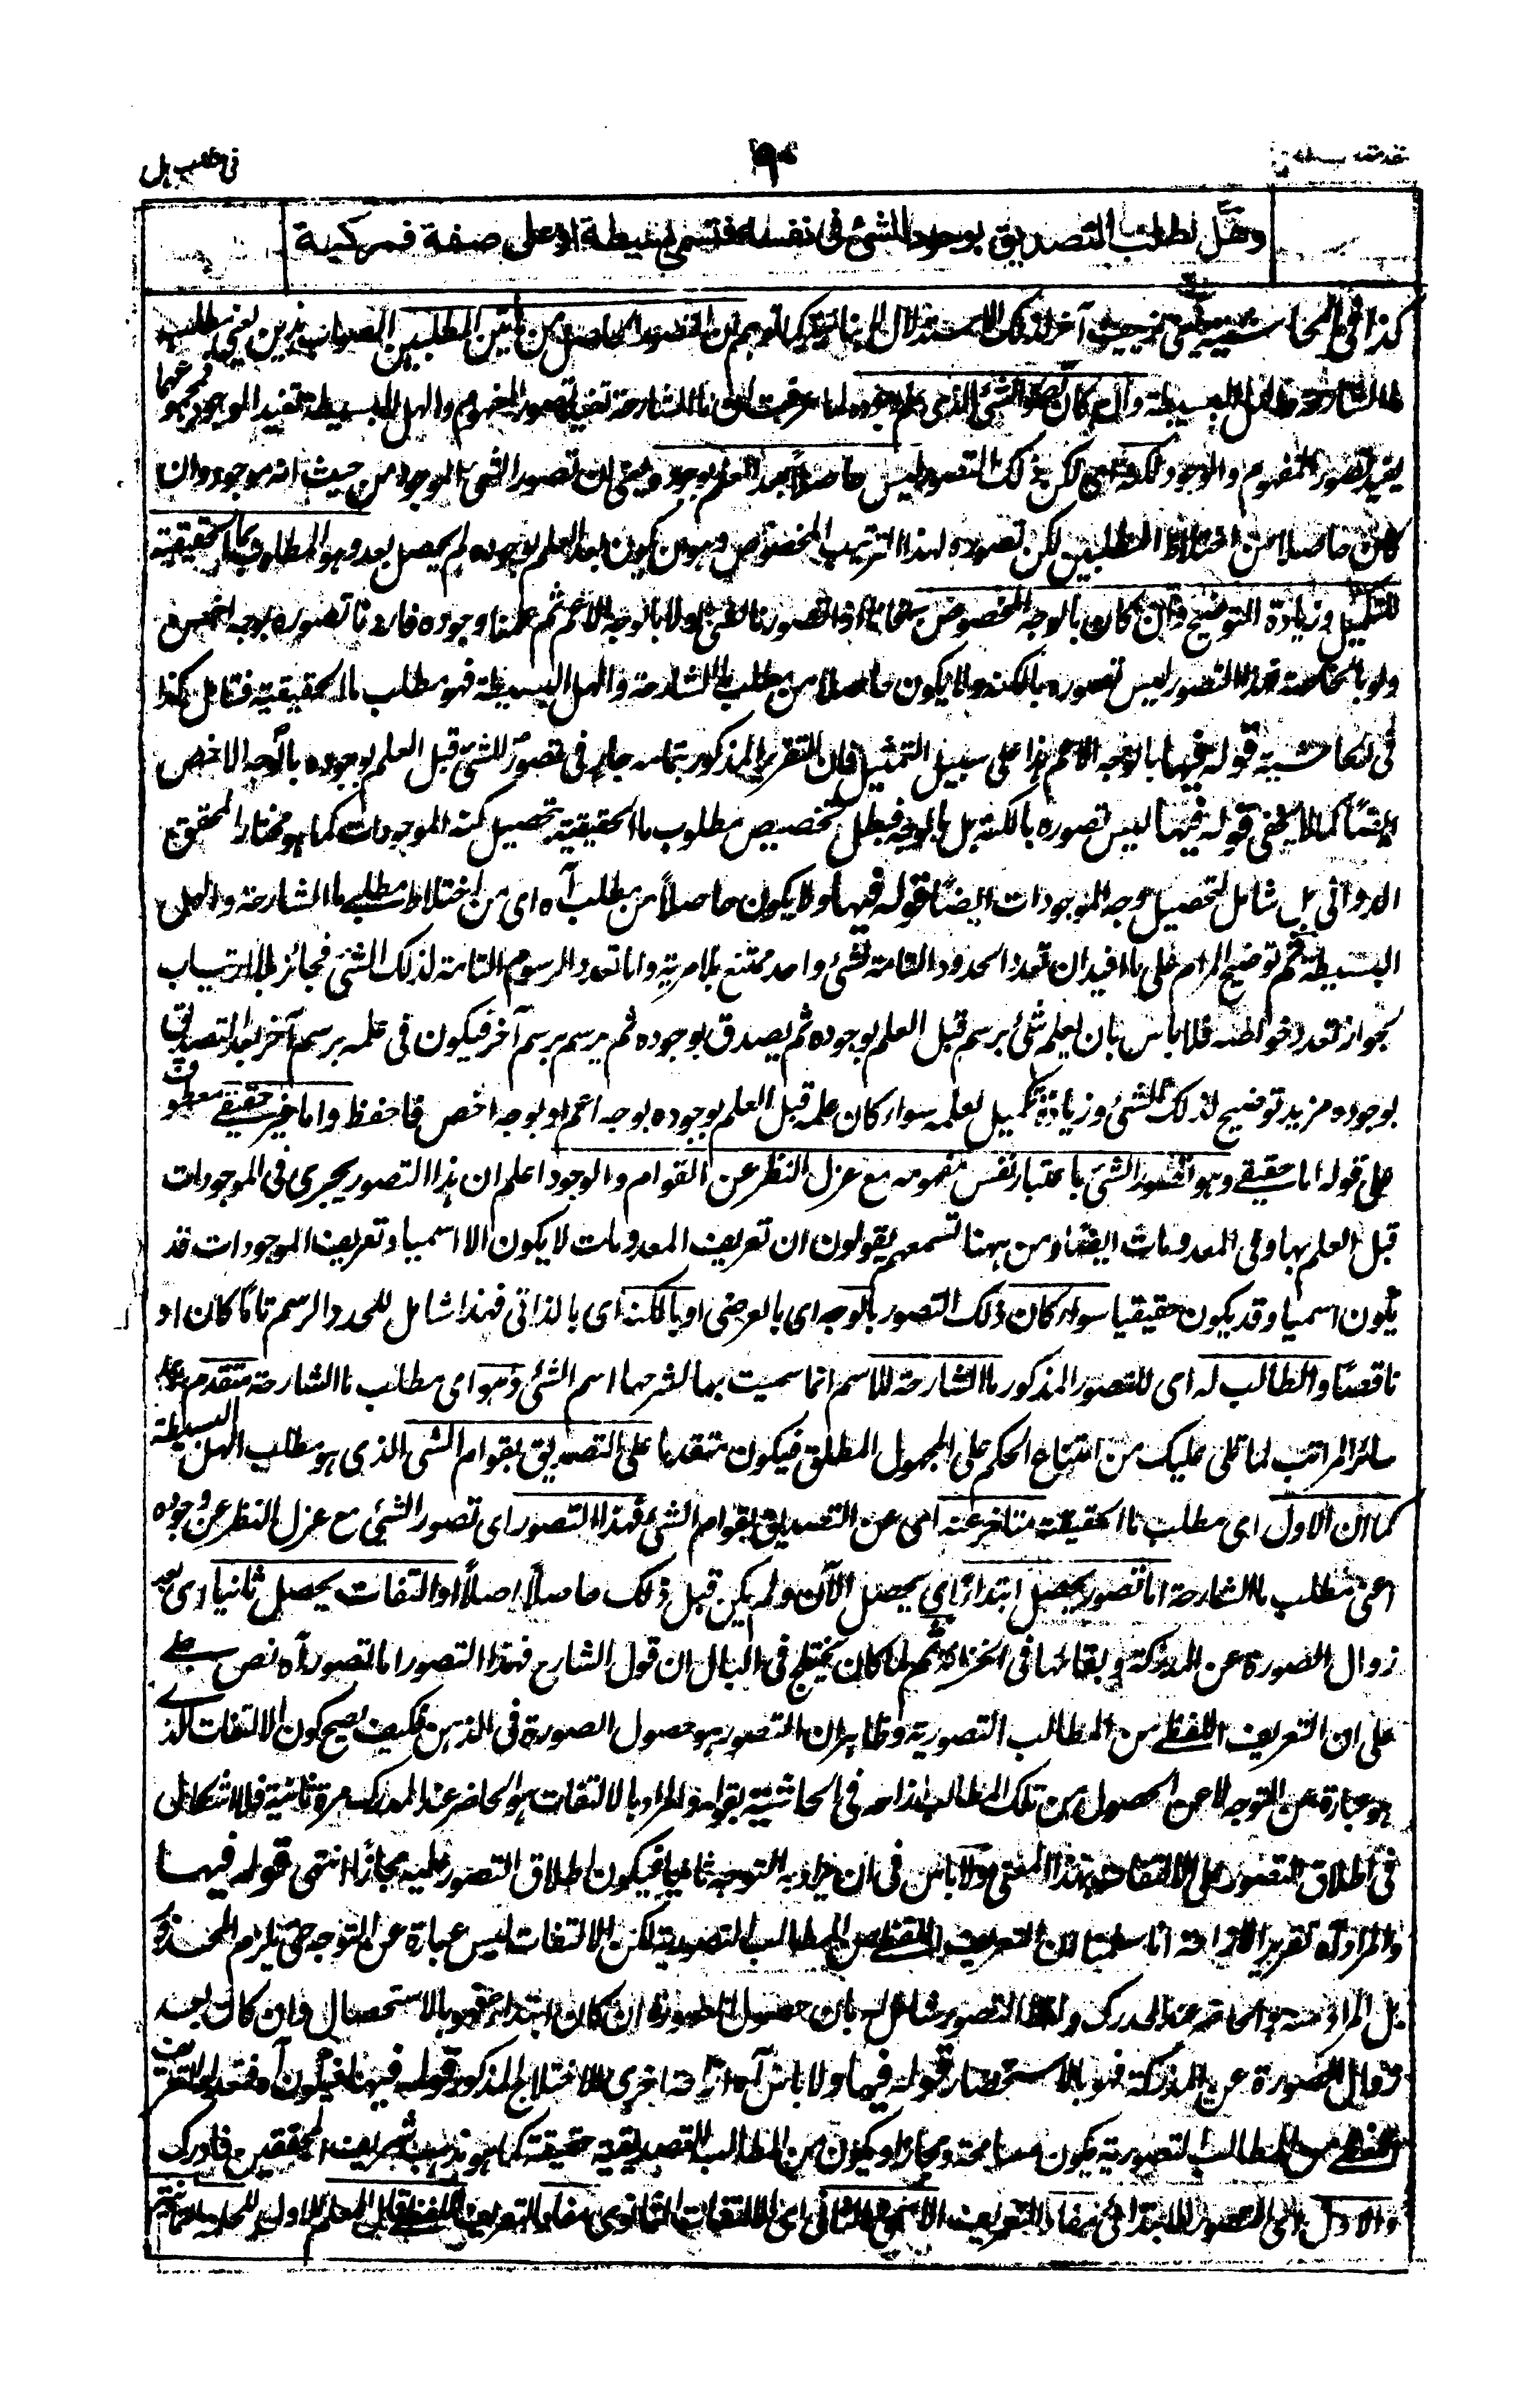 فى مطلب هل
وهل لطلب التصديق بوجود الشئ فى نفسه فتسمى بسيطة او على صفة فمركبة
كذا فى الحاشية آخر ذلك الاستدلال ان التصور الحاصل من هذين المطلبين الصواب هذين يعنى مطلب
ما الشارحة والهل البسيطة وان كان تصور الشئ الذى علم وجوده لما عرفت ان ما الشارحة تفيد تصور المفهوم والهل البسيطة تفيد الوجود فمجموعهما
يفيد تصور المفهوم والوجود لكن ذلك التصور ليس حاصلاً بعد العلم بوجوده يعنى ان تصور الشئ الموجود من حيث انه موجود وان
كان حاصلا من اختلاط المطلبين لكن تصوره لهذا الترتيب المخصوص وهو ان يكون بعد العلم بوجوده لم يحصل بعد وهو المطلوب بما الحقيقية
للتكميل وزيادة التوضيح وان كان بالوجه المخصوص اذا تصورنا الشئ اولا بالوجه الاعم ثم علمنا وجوده فاردنا تصوره بوجه اخص
ولو بالخاصة فهذا التصور ليس تصوره بالكنه ولا يكون حاصلا من مطلب ما الشارحة والهل البسيطة فهو مطلب ما الحقيقية فتامل كذا
فى الحاشية قوله فيها بالوجه الاعم هذا على سبيل التمثيل فان التقرير المذكور بتمامه جار فى تصور الشئ قبل العلم بوجوده بالوجه الاخص
ايضا كما لا يخفى قوله فيها ليس تصوره بالكنه بل بالوجه فبطل تخصيص مطلوب ما الحقيقية بتحصيل كنه الموجودات كما هو مختار المحقق
الدوانى بل شامل لتحصيل وجه الموجودات ايضًا قوله فيها ولا يكون حاصلاً من مطلب آه اى من اختلاط مطلبى ما الشارحة والهل
البسيطة ثم توضيح المرام على ما افيد ان تعدد الحدود التامة لشئ واحد ممتنع بلا مرية واما تعدد الرسوم التامة لذلك الشئ فجائز بلا ارتياب
لجواز تعدد خواصه فلا باس بان يعلم شئ برسم قبل العلم بوجوده ثم يصدق بوجوده ثم يرسم برسم آخر فيكون فى علمه برسم آخر بعد التصديق
بوجوده مزيد توضيح لذلك الشئ وزيادة تكميل لعلمه سواء كان علمه قبل العلم بوجوده بوجه اعم او بوجه اخص فاحفظ واما غير حقيقى معطوف
على قوله اما حقيقى وهو تصور الشئ باعتبار نفس مفهومه مع عزل النظر عن القوام والوجود اعلم ان هذا التصور يجرى فى الموجودات
قبل العلم بها وفى المعدومات ايضا ومن ههنا تسمعهم يقولون ان تعريف المعدومات لا يكون الا اسميا وتعريف الموجودات قد
يكون اسميا وقد يكون حقيقيا سواء كان ذلك التصور بالوجه اى بالعرضى او بالكنه اى بالذاتى فهذا شامل للحد والرسم تاما كان او
ناقصًا والطالب له اى للتصور المذكور ما الشارحة للاسم انما سميت بها لشرحها اسم الشئ وهو اى مطلب ما الشارحة متقدم على
سائر المراتب لما تلى عليك من امتناع الحكم على المجهول المطلق فيكون متقدما على التصديق بقوام الشئ الذى هو مطلب الهل البسيطة
كما ان الاول اى مطلب ما الحقيقة متاخر عنه اى عن التصديق بقوام الشئ فهذا التصور اى تصور الشئ مع عزل النظر عن وجوده
اعنى مطلب ما الشارحة اما تصور يحصل ابتداءً اى يحصل الآن ولم يكن قبل ذلك حاصلاً اصلاً او التفات يحصل ثانيا اى بعد
زوال الصورة عن المدركة وبقائها فى الخزانة ثم لما كان يختلج فى البال ان قول الشارح فهذا التصور اما تصور آه نص على
على ان التعريف اللفظى من المطالب التصورية وظاهر ان التصور هو حصول الصورة فى الذهن فكيف يصح كون الالتفات الذى
هو عبارة عن التوجه لا عن الحصول من تلك المطالب ازاحه فى الحاشية بقوله والمراد بالالتفات هو الحاضر عند المدرك مرة ثانية فلا اشكال
فى اطلاق التصور على الالتفات بهذا المعنى ولا باس فى ان يراد به التوجه ثانيا فيكون اطلاق التصور عليه مجازًا انتهى قوله فيها
والمراد آه تقرير الازاحة انا سلمنا ان التعريف اللفظى من المطالب التصورية لكن الالتفات ليس عبارة عن التوجه حتى يلزم المحذور
بل المراد منه هو الحاضر عند المدرك ولفظ التصور شامل له بان حصول الصورة ان كان ابتداء فهو بالاستحصال وان كان بعد
زوال الصورة عن المدركة فهو بالاستحضار قوله فيها ولا باس آه ازاحة اخرى للاختلاج المذكور قوله فيها فيكون آه فعد التعريف
اللفظى من المطالب التصورية يكون مسامحة ومجازا ويكون من المطالب التصديقية حقيقة كما هو مذهب شريف المحققين فادرك
والاول اى التصور الابتدائى مفاد التعريف الاسمى والثانى اى الالتفات الثانوى مفاد التعريف اللفظى قال المعلم الاول